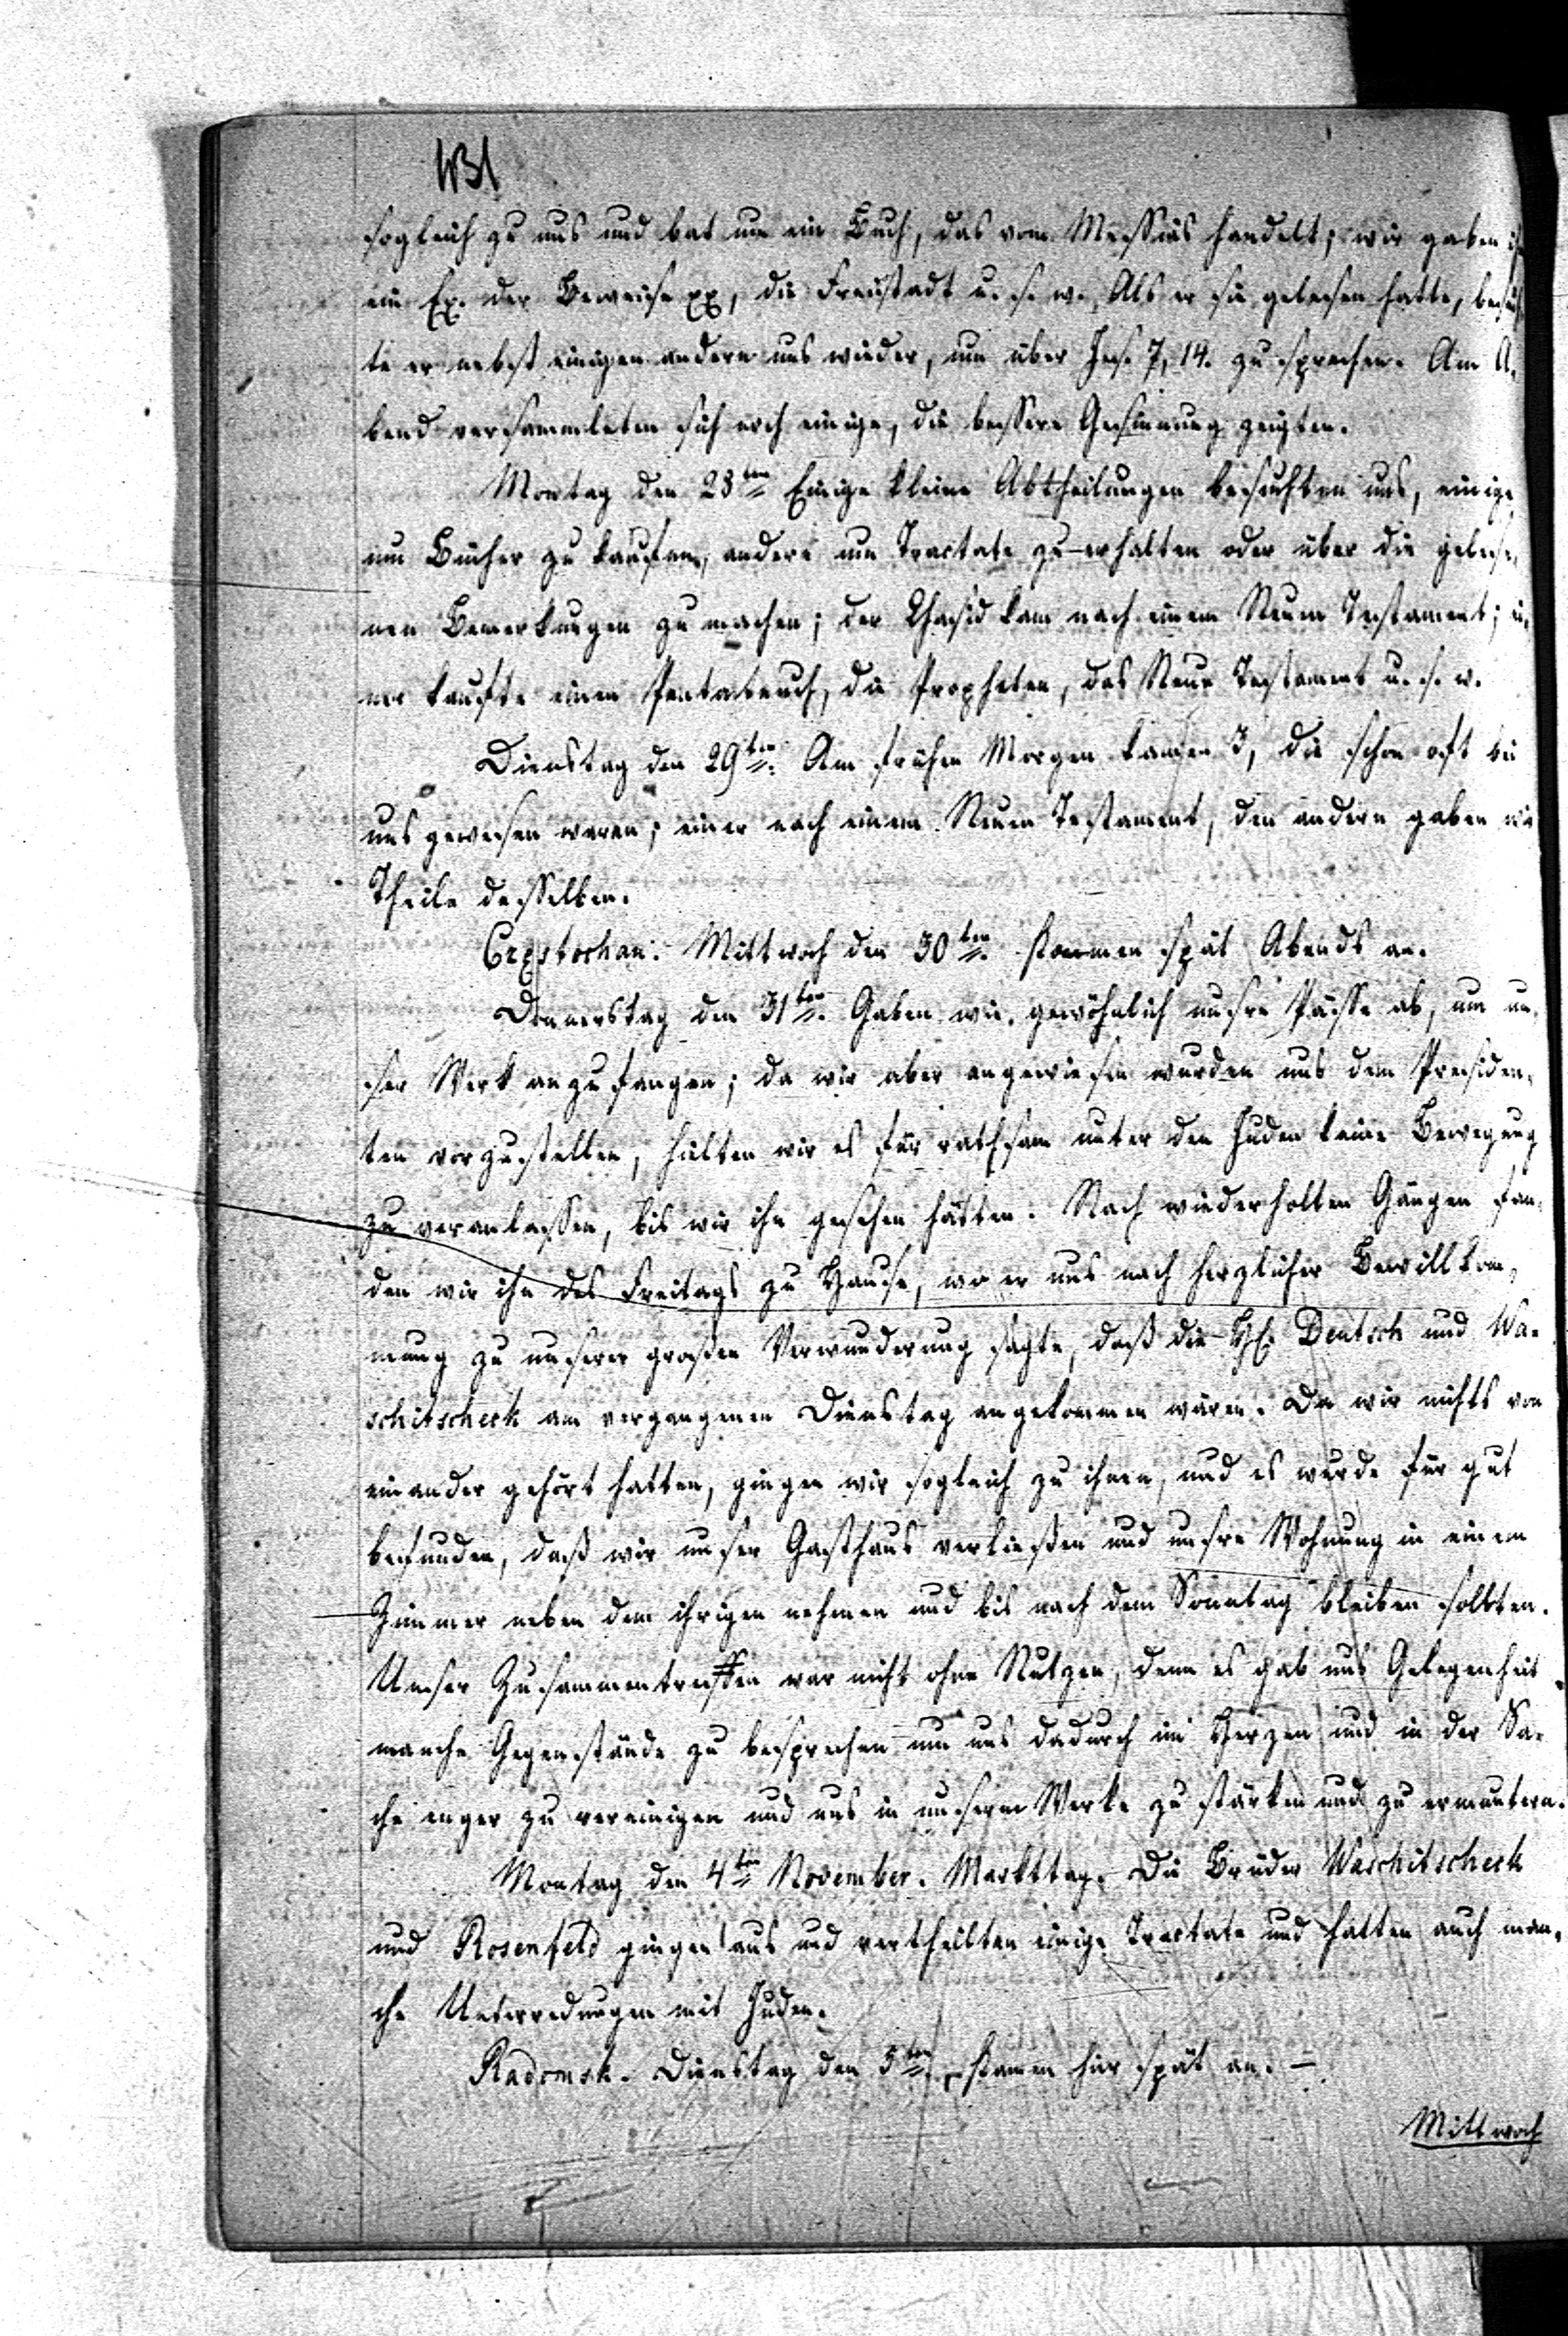 sogleich zu uns und bat um ein Buch, das vom Messias handelt; wir gaben ihm
ein Ex. der Beweise xx, die Freistadt u. s. w. Als er sie gelesen hatte, besuch-
te er nebst einigen andern uns wieder, um über Jes. 7, 14. zu sprechen. Am A-
bend versammleten sich noch einige, die bessere Gesinnung zeigten.
Montag den 28ten Einige kleine Abtheilungen besuchten uns, einige
um Bücher zu kaufen, andere um Tractate zu erhalten oder über die gelese-
nen Bemerkungen zu machen; der Chasid kam nach einem Neuen Testament; ei-
ner kaufte einen Pentateuch, die Propheten, das Neue Testament u. s. w.
Dienstag den 29ten. Am frühen Morgen kamen 3, die schon oft bei
uns gewesen waren; einer nach einem Neuen Testament, den andern gaben wir
Theile desselben.
Czestochau. Mittwoch den 30ten. kommen spät Abends an.
Donnerstag den 31ten. Gaben wie gewöhnlich unsre Pässe ab, um un-
ser Werk anzufangen; da wir aber angewiesen wurden uns dem Präsiden-
ten vorzustellen, hielten wir es für rathsam unter den Juden keine Bewegung
zu veranlassen, bis wir ihn gesehen hätten. Nach wiederholten Gängen fan-
den wir ihn des Freitags zu Hause, wo er uns nach herzlicher Bewillkom-
mung zu unserer großen Verwunderung sagte, daß die HH. Deutsch und Wa-
schitscheck am vergangenen Dienstag angekommen wären. Da wir nichts von
einander gehört hatten, gingen wir sogleich zu ihnen, und es wurde für gut
befunden, daß wir unser Gasthaus verließen und unsre Wohnung in einem
Zimmer neben dem ihrigen nehmen und bis nach dem Sonntag bleiben sollten.
Unser Zusammentreffen war nicht ohne Nutzen, denn es gab uns Gelegenheit
manche Gegenstände zu besprechen um uns dadurch im Herzen und in der Sa-
che enger zu vereinigen und uns in unserm Werke zu stärken und zu ermuntern.
Montag den 4ten November. Markttag. Die Brüder Waschitscheck
und Rosenfeld gingen aus und vertheilten einige Tractate und hatten auch man-
che Unterredungen mit Juden.
Radomsk. Dienstag den 5ten, kamen hier spät an. —
Mittwoch